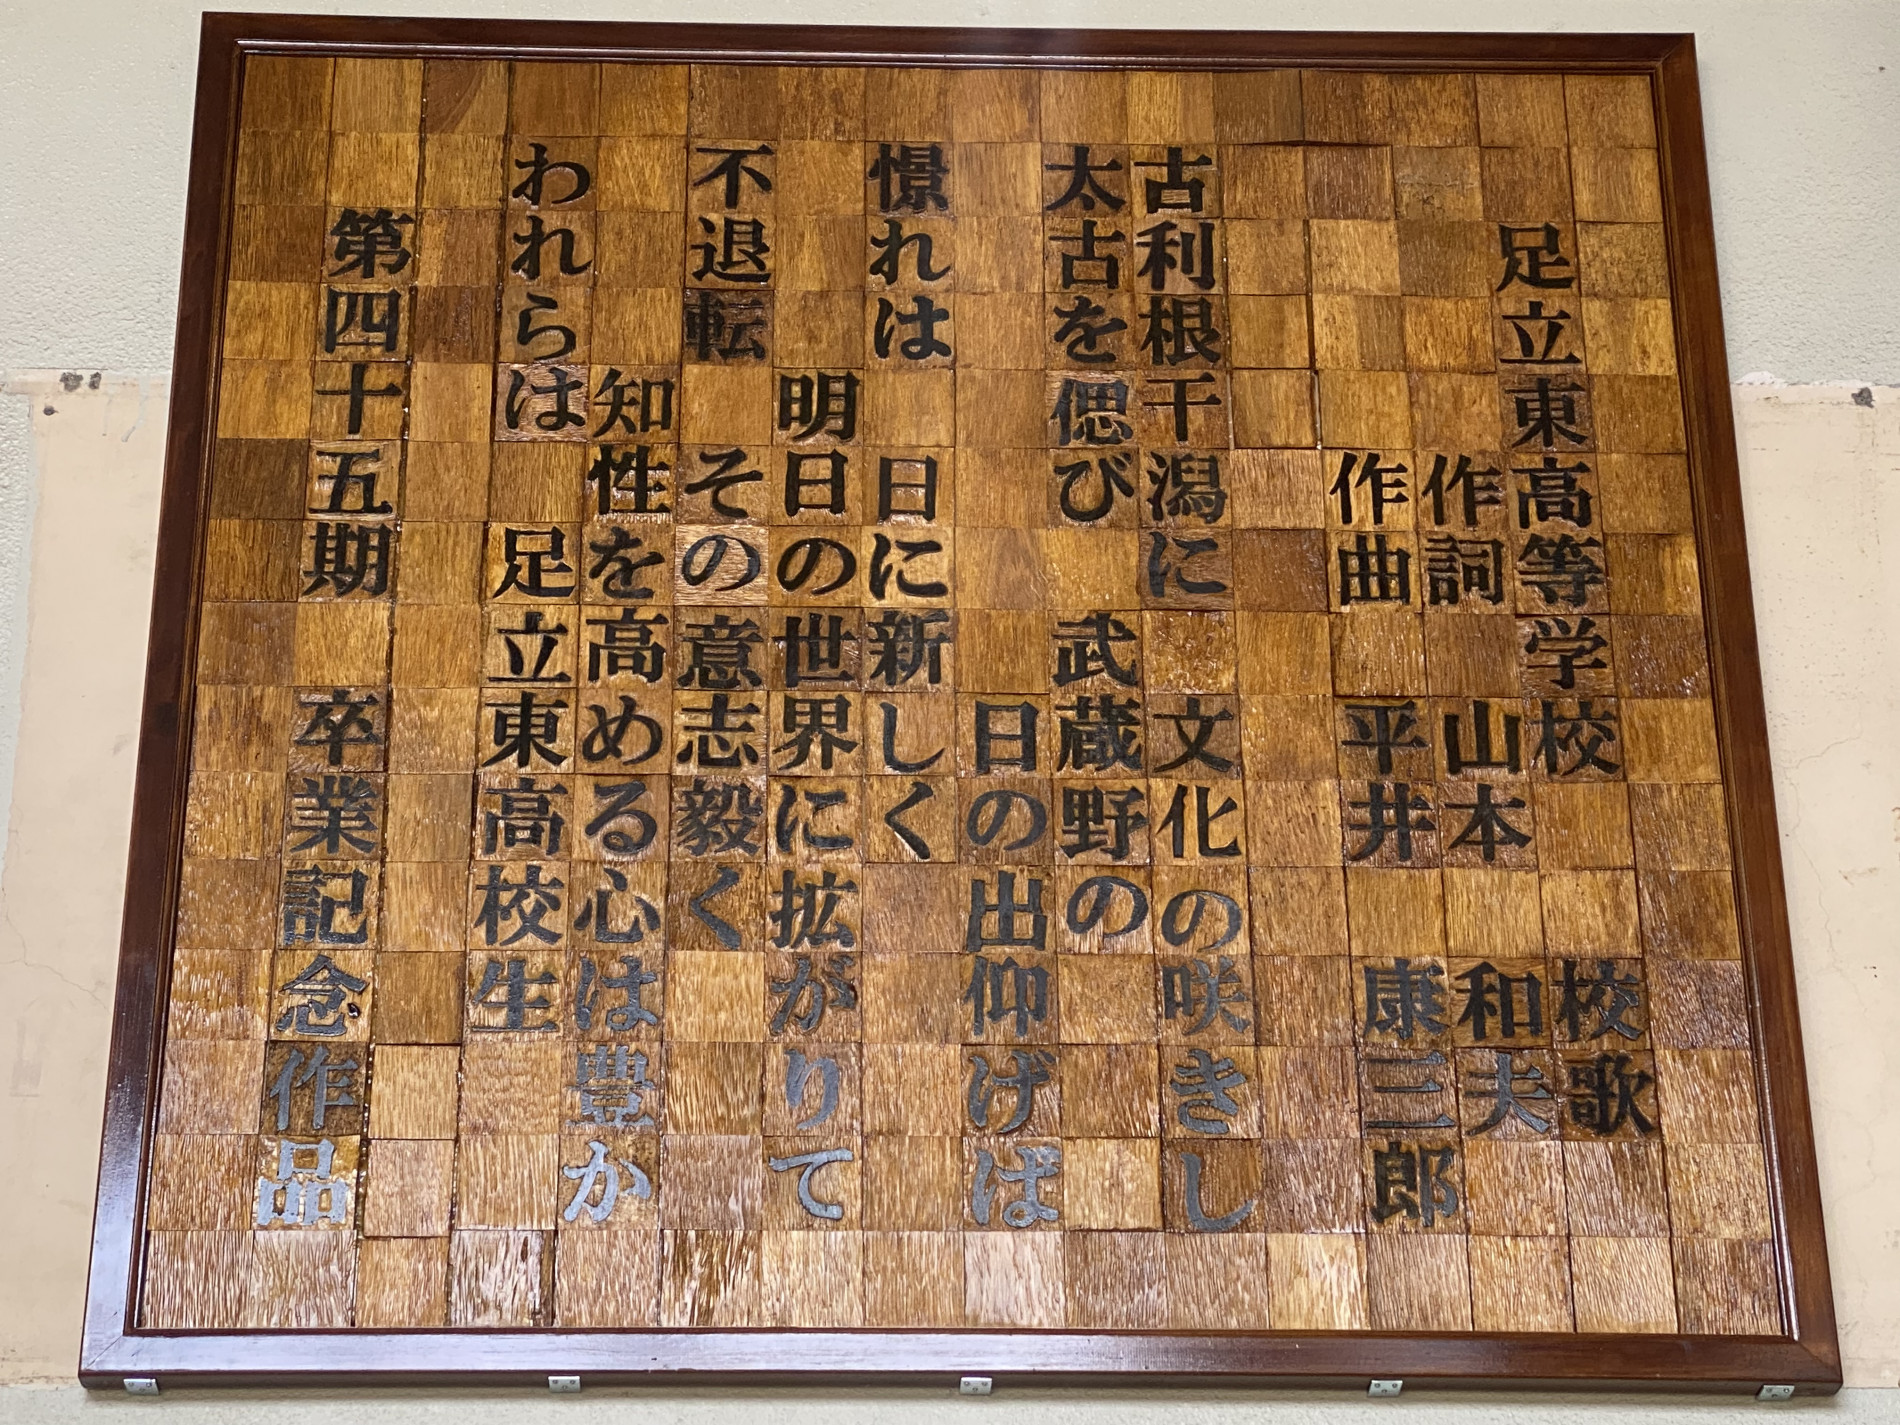 足立東高等学校 校歌
作詞 山本 和夫
作曲 平井 康三郎
古利根干潟に 文化の咲きし
太古を偲び 武蔵野の
日の出仰げば
憬れは 日に新しく
明日の世界に拡がりて
不退転 その意志毅く
知性を高める心は豊か
われらは 足立東高校生
第四十五期 卒業記念作品